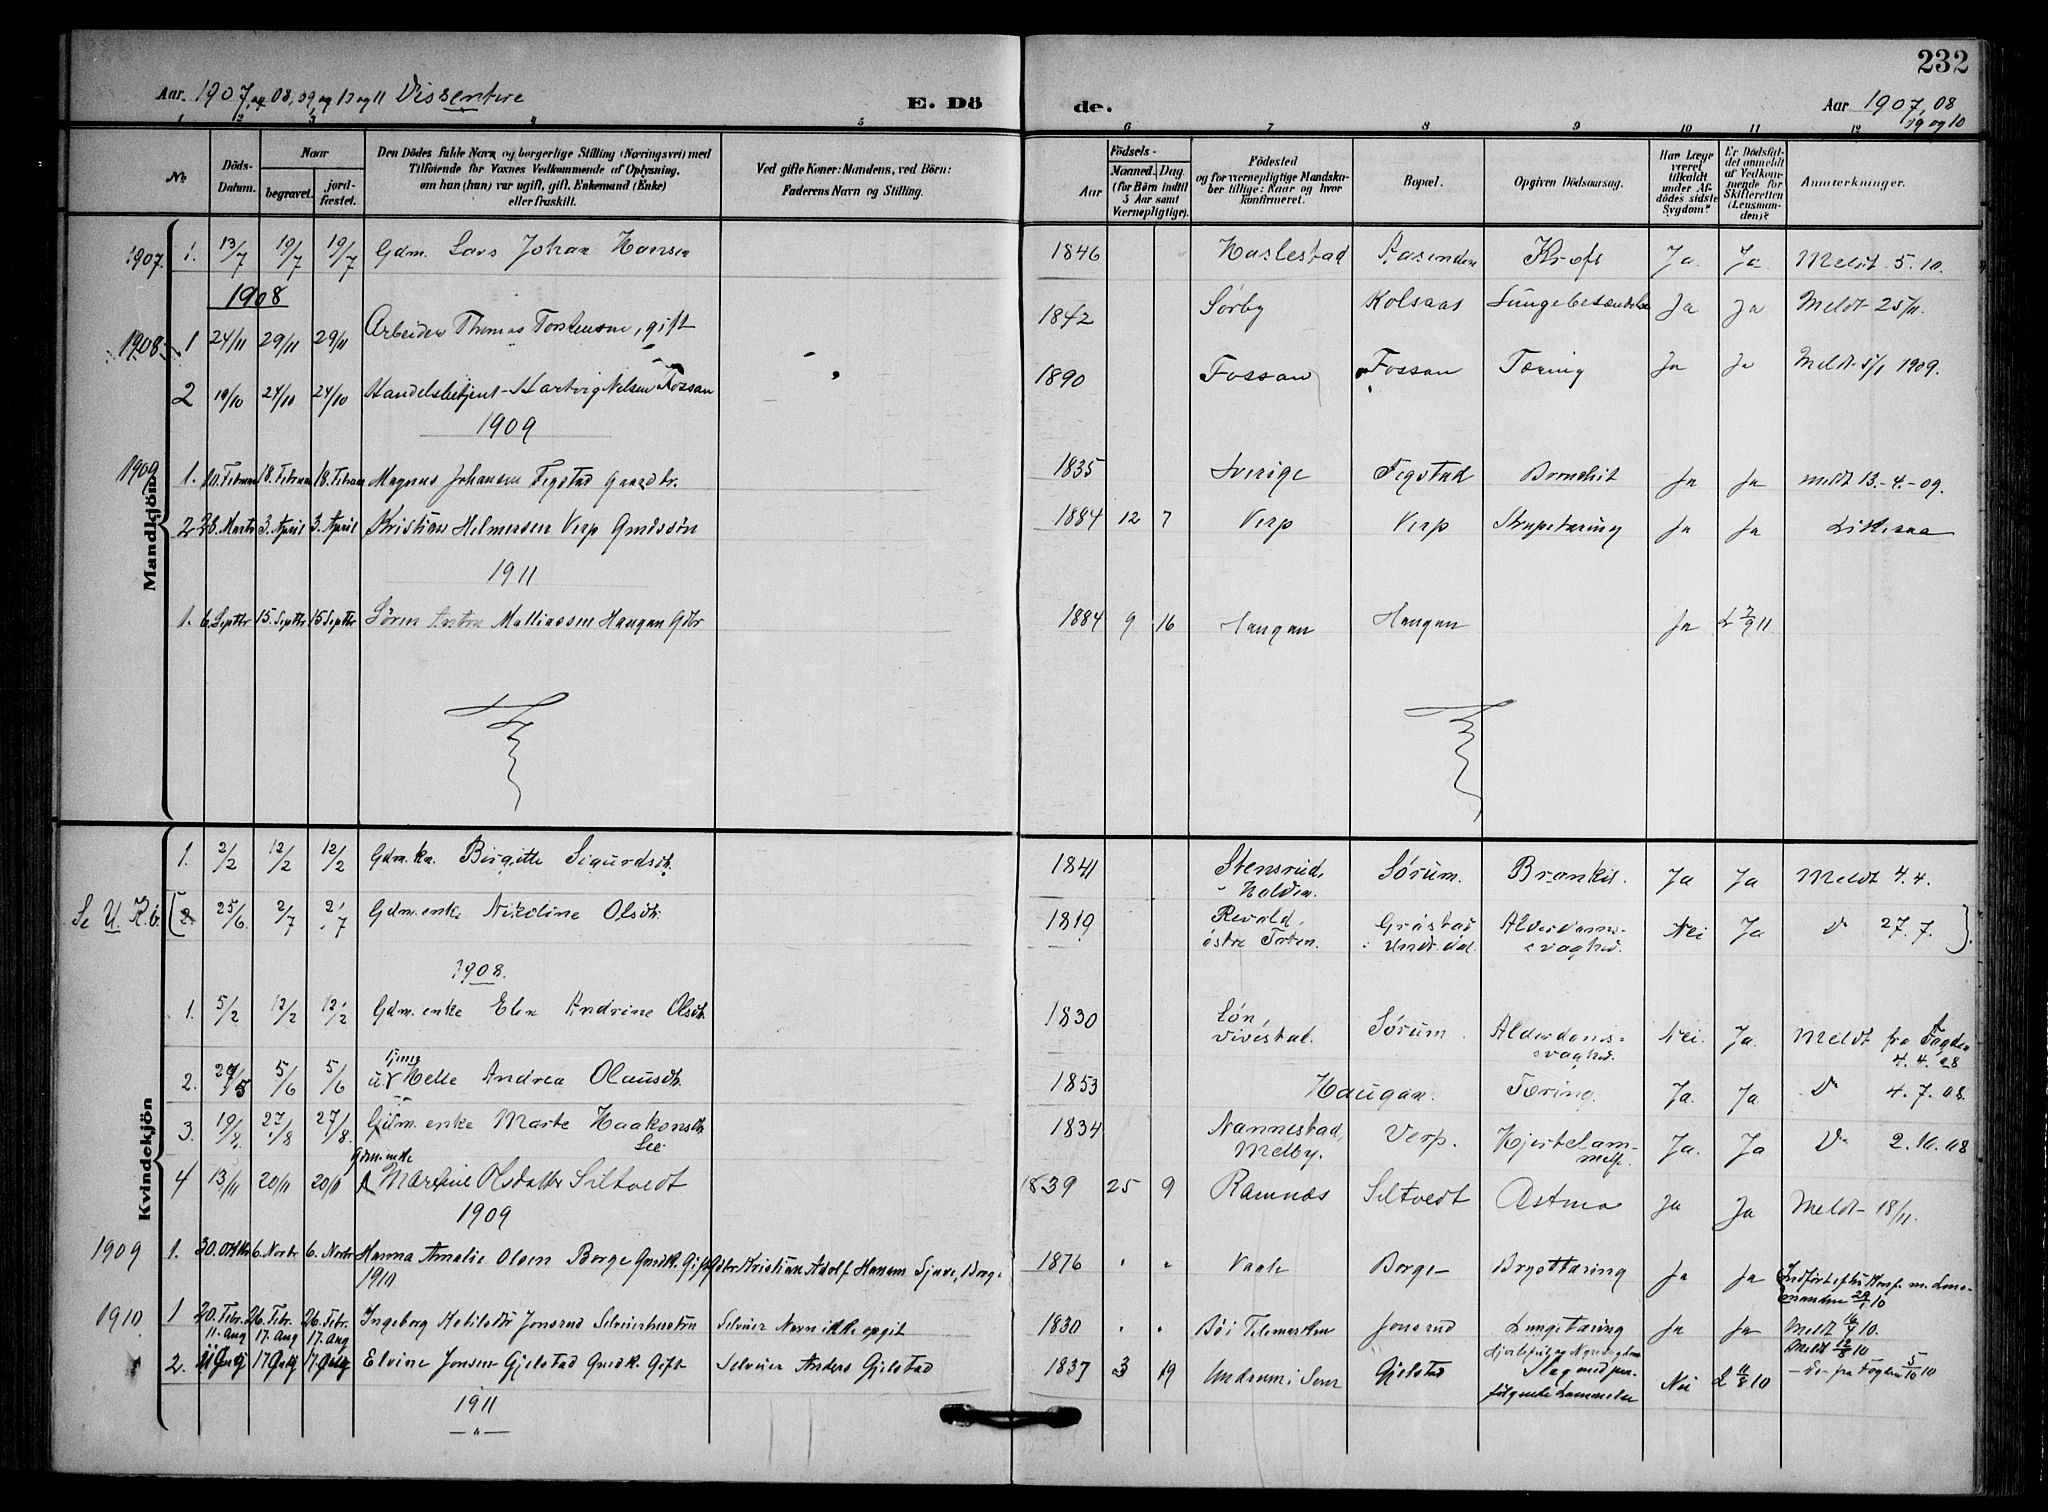 232
Aar. 1907, og 08, 09, og 10 og 11 Dissentere E. Dö de. Aar 1907, 08
09 og 10
1 2 3 4 5 6 7 8 9 10 11 12
No
Döds-Datum.
Naar
begravet.
jord-fæstet.
Den Dödes fulde Navn og borgerlige Stilling (Næringsvei) med
Tilföiende for Voxnes Vedkommende af Oplysning,
om han (hun) var ugift, gift, Enkemand (Enke)
eller fraskilt.
Ved gifte Koner: Mandens, ved Börn:
Faderens Navn og Stilling.
Aar
Födsels-
Maaned. Dag.
(for Börn indtil
5 Aar samt
Værnepligtige).
Födested
og for værnepligtige Mandska-
ber tillige: Naar og hvor
konfirmeret.
Bopæl.
Opgiven Dödsaarsag.
Har Læge
været
tilkaldt
under Af-
dödes sidste
Sygdom?
Er Dödsfal-
det anmeldt
af Vedkom-
mende for
Skifteretten
(Lensman-
den)?
Anmerkninger.
Mandkjön
1907. 1. 13/7 19/7 19/7 Gdm. Lars Johan Hansen 1846 Haslestad Aasenden Kræft Ja Ja. Meldt 5. 10.
1908
1908 1 24/11 29/11 29/11 Arbeider Thomas Torstensen, gift 1842 Sørby Kolsaas Lungebetændelse Ja Ja Meldt 25/11.
2 19/10 24/10 24/10 Handelsbetjent Hartvig Nilsen Fossan 1890 Fossan Fossan Tæring Ja Ja Meldt 5/1 1909.
1909
1909 1. 10. Februar 18. Februar 18. Februar Magnus Johansen Fegstad Gaardbr. 1835 Sverige Fegstad Bronchit Ja Ja meldt 13.-4.-09.
2 28. Marts 3. April 3. April Kristian Helmersen Verp Gmdssøn 1884 12 7 Verp Verp Strupetæring Ja Ja Ditto
1911
1. 6. Septbr 15. Septbr 15 Septbr Sören Anton Mathiassen Haugan Gdbr 1884 9 16 Haugan Haugan Ja L 7/9 11
Kvindekjön
1. 2/2 12/2 12/2 Gdm.kn. Birgitte Sigurdsdt. 1841 Stensrud, Holden. Sørum. Bronkit. Ja Ja Meldt 4. 4.
Se U. K. b. [2. 25/6 2/7 2/7 Gdm. enke Nikoline Olsdt. 1819 Revold, østre Toten. Gråstad Undr.dal. Alderdoms-svaghed. Nei Ja Do 27. 7. ]
1908.
1. 5/2 12/2 12/2 Gdm. enke Elen Andrine Olsdt. 1830 Løn, Vivestad. Sørum. Alderdoms-svaghed. Nei. Ja. Meldt fra Fogden 4. 4. 08
2. 29/5 5/6 5/6 Helle Andrea Olausdt. 1853 Haugan. Tæring. Ja. Ja Do 4. 7. 08.
3. 19/8 27/8 27/8. Gdm. enke Marte Haakonsdt. Lie 1834 Nannestad, Melby. Verp. Hjertelam-melse. Ja. Ja Do 2. 10. 08
4 13/11 20/11 20/11 Gdm.enke Maren Olsdatter Siltvedt 1839 25 9 Ramnæs Siltvedt Astma Ja Ja Meldt 18/11.
1909
1909 1. 30. Oktbr 6. Novbr 6. Novbr Hanna Amalie Olsen Borge Gmdk. Gift Gdbr Kristian Adolf Hansen Sjuve, Borge 1876 " " Vaale Borge Brysttæring Ja Ja Indført efter Konf. m. Lens-manden 29/1 10
1910
1910 1 20. Febr. 26. Febr 26. Febr. Ingeborg Ketilsdtr Jonsrud Selveierhustru Selveier Navn ikke opgit 1830 " " Bö i Telemarken Jonsrud Lungetæring Ja Ja Meldt 16/7 10.
11. Aug 17. Aug 17. Aug Meldt 12/8 10
2. 11 July 17 July 17. July Elvine Jensen Gjelstad Gmdk. Gift Selveier Anders Gjelstad 1837 3 19 Undrum i Sem Gjelstad Slag med paa-følgende Lammelse Nei L 11/8 10 – do – fra Fogden 5/10 10
1911